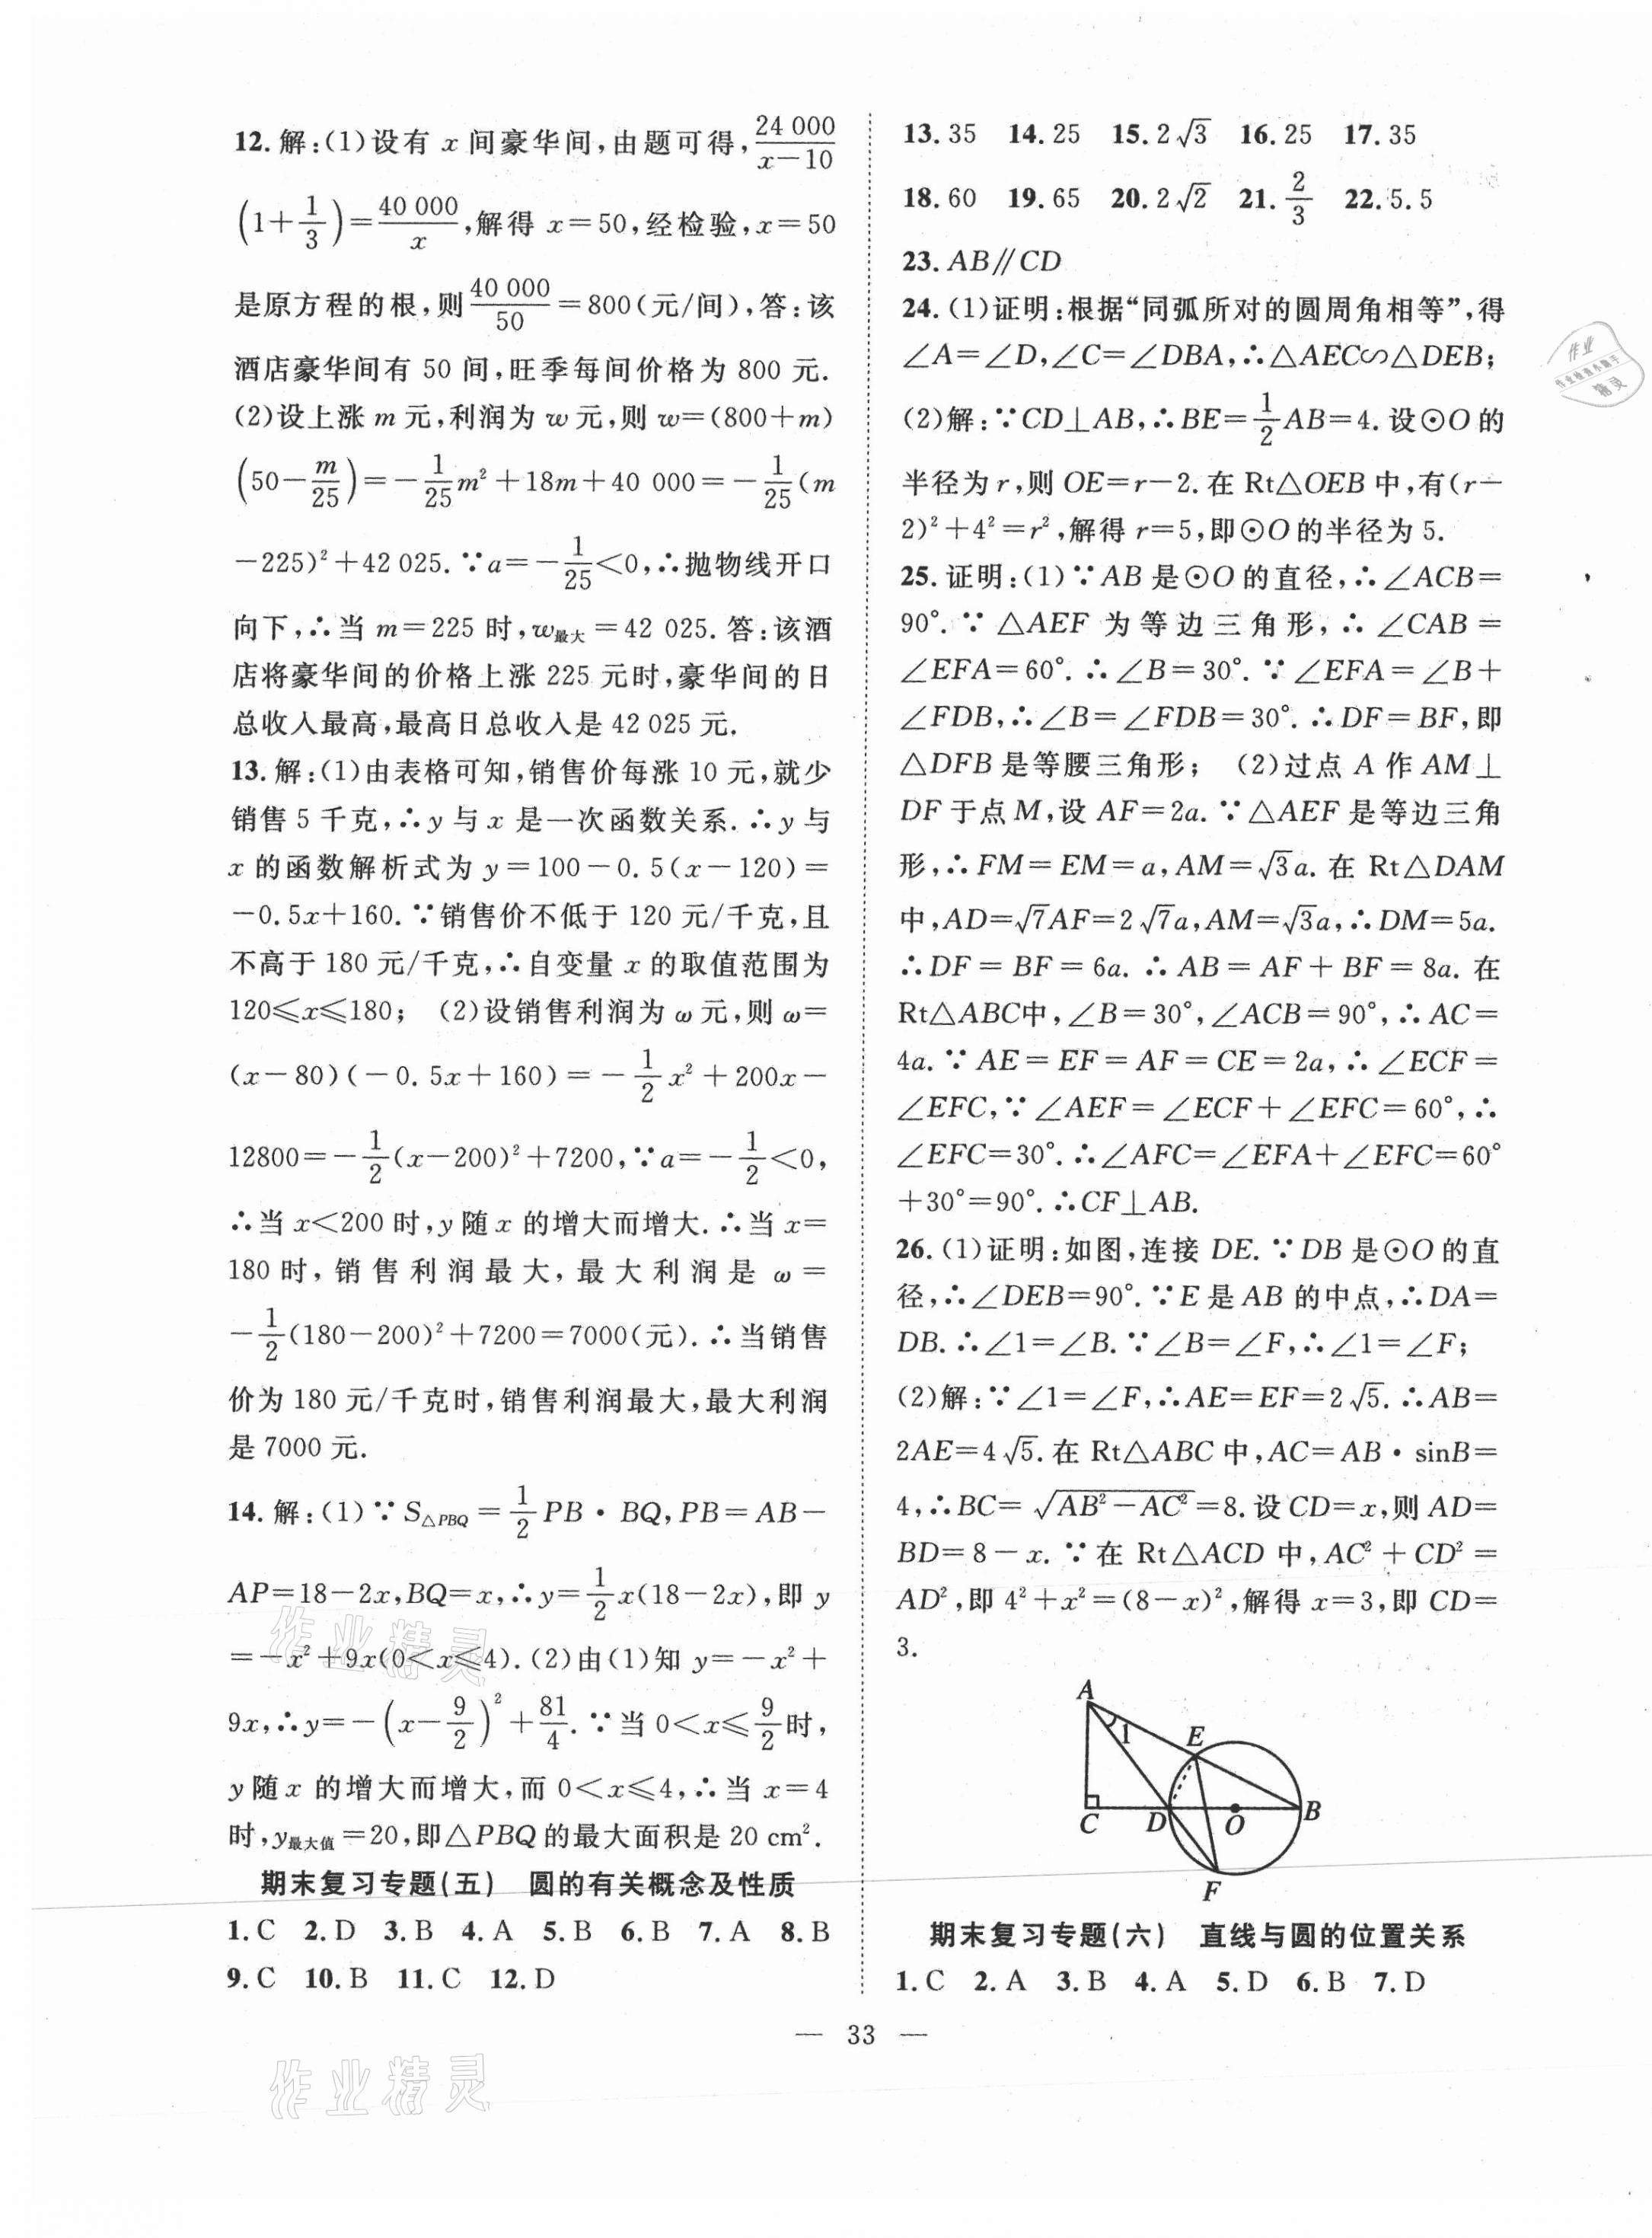 12.解:(1)设有 x 间豪华间,由题可得,$\frac{24\ 000}{x-10}$
$\left(1+\frac{1}{3}\right)=\frac{40\ 000}{x}$,解得 x=50,经检验,x=50
是原方程的根,则$\frac{40\ 000}{50}$=800(元/间),答:该
酒店豪华间有 50 间,旺季每间价格为 800 元.
(2)设上涨 m 元,利润为 w 元,则 w=(800+m)
$\left(50-\frac{m}{25}\right)=-\frac{1}{25}m^2+18m+40\ 000=-\frac{1}{25}(m$
$-225)^2+42\ 025.∵a=-\frac{1}{25}<0$,∴抛物线开口
向下,∴当 m=225 时,$w_{最大}$=42 025.答:该酒
店将豪华间的价格上涨 225 元时,豪华间的日
总收入最高,最高日总收入是 42 025 元.
13.解:(1)由表格可知,销售价每涨 10 元,就少
销售 5 千克,∴y 与 x 是一次函数关系.∴y 与
x 的函数解析式为 y=100-0.5(x-120)=
-0.5x+160.∵销售价不低于 120 元/千克,且
不高于 180 元/千克,∴自变量 x 的取值范围为
120≤x≤180; (2)设销售利润为 ω 元,则 ω=
$(x-80)(-0.5x+160)=-\frac{1}{2}x^2+200x-$
$12800=-\frac{1}{2}(x-200)^2+7200$,∵$a=-\frac{1}{2}<0$,
∴当 x<200 时,y 随 x 的增大而增大.∴当 x=
180 时,销售利润最大,最大利润是 ω=
$-\frac{1}{2}(180-200)^2+7200=7000$(元).∴当销售
价为 180 元/千克时,销售利润最大,最大利润
是 7000 元.
14.解:(1)∵$S_{△PBQ}=\frac{1}{2}PB·BQ$,PB=AB-
AP=18-2x,BQ=x,∴$y=\frac{1}{2}x(18-2x)$,即 y
$=-x^2+9x(0<x≤4)$.(2)由(1)知 $y=-x^2+$
9x,∴$y=-\left(x-\frac{9}{2}\right)^2+\frac{81}{4}$.∵当 $0<x≤\frac{9}{2}$时,
y 随 x 的增大而增大,而 0<x≤4,∴当 x=4
时,$y_{最大值}$=20,即△PBQ 的最大面积是 20 cm².
期末复习专题(五) 圆的有关概念及性质
1.C 2.D 3.B 4.A 5.B 6.B 7.A 8.B
9.C 10.B 11.C 12.D
13.35 14.25 15.2$\sqrt{3}$ 16.25 17.35
18.60 19.65 20.2$\sqrt{2}$ 21.$\frac{2}{3}$ 22.5.5
23.AB∥CD
24.(1)证明:根据“同弧所对的圆周角相等”,得
∠A=∠D,∠C=∠DBA,∴△AEC∽△DEB;
(2)解:∵CD⊥AB,∴BE=$\frac{1}{2}$AB=4.设⊙O 的
半径为 r,则 OE=r-2.在 Rt△OEB 中,有(r-
2)²+4²=r²,解得 r=5,即⊙O 的半径为 5.
25.证明:(1)∵AB 是⊙O 的直径,∴∠ACB=
90°.∵△AEF 为等边三角形,∴∠CAB=
∠EFA=60°.∴∠B=30°.∵∠EFA=∠B+
∠FDB,∴∠B=∠FDB=30°.∴DF=BF,即
△DFB 是等腰三角形; (2)过点 A 作 AM⊥
DF 于点 M,设 AF=2a.∵△AEF 是等边三角
形,∴FM=EM=a,AM=$\sqrt{3}$a.在 Rt△DAM
中,AD=$\sqrt{7}$AF=2$\sqrt{7}$a,AM=$\sqrt{3}$a,∴DM=5a.
∴DF=BF=6a.∴AB=AF+BF=8a.在
Rt△ABC中,∠B=30°,∠ACB=90°,∴AC=
4a.∵AE=EF=AF=CE=2a,∴∠ECF=
∠EFC,∵∠AEF=∠ECF+∠EFC=60°,∴
∠EFC=30°.∴∠AFC=∠EFA+∠EFC=60°
+30°=90°.∴CF⊥AB.
26.(1)证明:如图,连接 DE.∵DB 是⊙O 的直
径,∴∠DEB=90°.∵E 是 AB 的中点,∴DA=
DB.∴∠1=∠B.∵∠B=∠F,∴∠1=∠F;
(2)解:∵∠1=∠F,∴AE=EF=2$\sqrt{5}$.∴AB=
2AE=4$\sqrt{5}$.在 Rt△ABC 中,AC=AB·sinB=
4,∴BC=$\sqrt{AB^2-AC^2}$=8.设 CD=x,则 AD=
BD=8-x.∵在 Rt△ACD 中,AC²+CD²=
AD²,即 4²+x²=(8-x)²,解得 x=3,即 CD=
3.
A
1
E
C
D
O
B
F
期末复习专题(六) 直线与圆的位置关系
1.C 2.A 3.B 4.A 5.D 6.B 7.D
— 33 —
作业精灵
作业精灵
作业
作业检查小助手
精灵